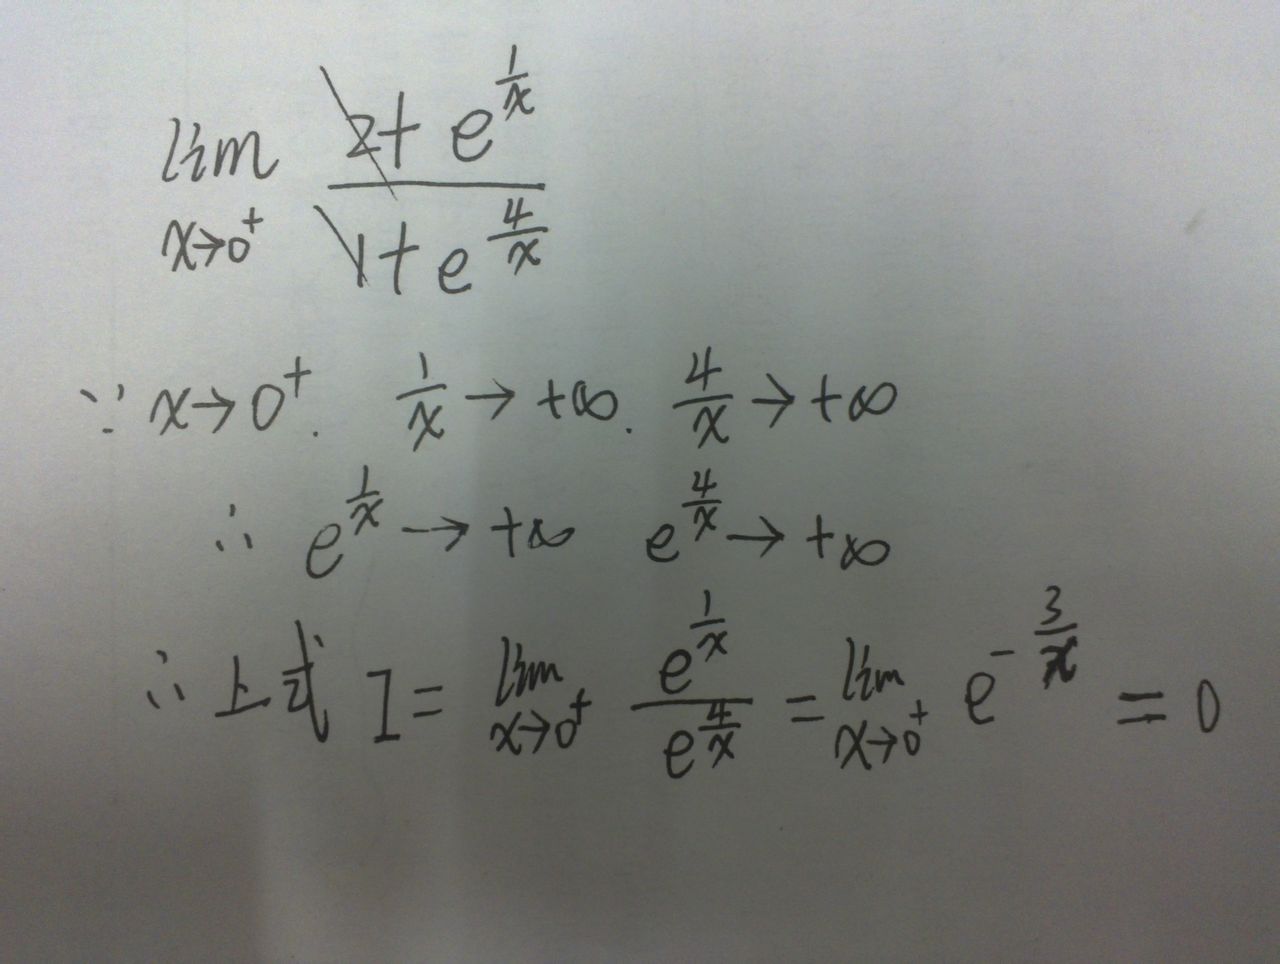 lim x→0⁺ (2 + e^(1/x)) / (1 + e^(4/x))
∵ x→0⁺. 1/x → +∞. 4/x → +∞
∴ e^(1/x) → +∞ e^(4/x) → +∞
∴ 上式 I = lim x→0⁺ e^(1/x) / e^(4/x) = lim x→0⁺ e^(-3/x) = 0